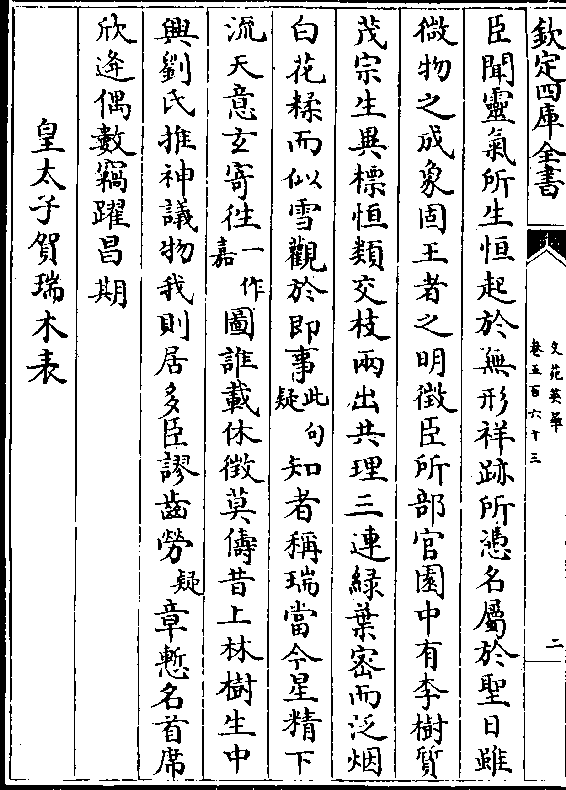 欽定四庫全書
文苑英華
卷五百六十三
二
臣聞靈氣所生恒起於無形祥跡所憑名屬於聖日雖
微物之成象固王者之明徵臣所部官園中有李樹質
茂宗生異標恒類交枝兩出共理三連綠葉宻而泛烟
白花糅而似雪觀於即事此句疑知者稱瑞當今星精下
流天意玄寄徃一作嘉圖誰載休徵莫儔昔上林樹生中
興劉氏推神議物我則居多臣謬齒勞疑章慙名首席
欣逢偶數竊躍昌期
皇太子賀瑞木表